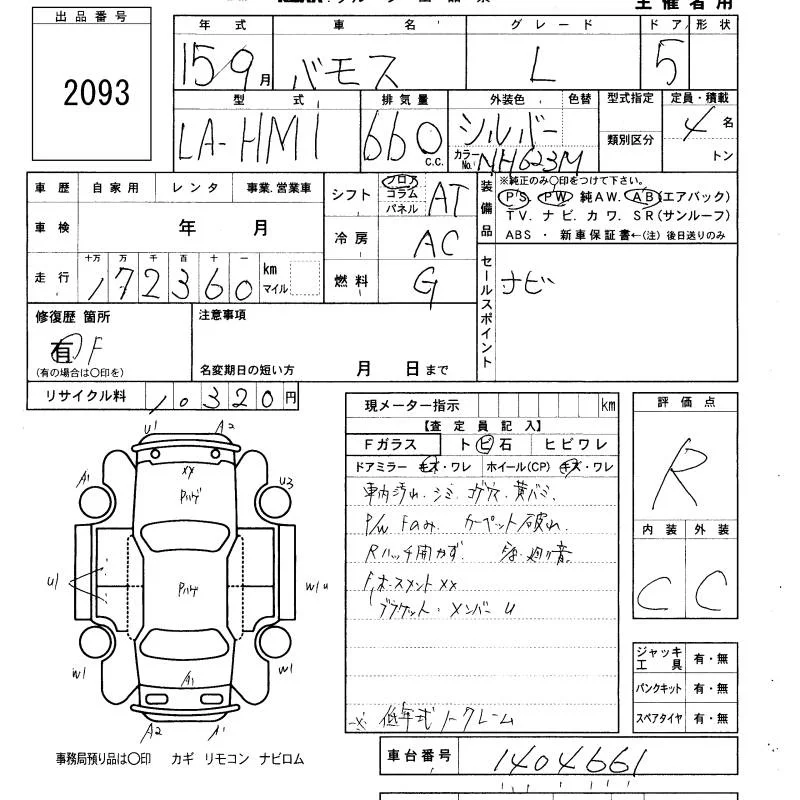 主催者用
出品番号
2093
年式 車名 グレード ドア 形状
15/9月 バモス L 5
型式 排気量 外装色 色替 型式指定 定員・積載
LA-HM1 660 C.C. シルバー 類別区分 4名
カラーNo. NH623M トン
車歴 自家用 レンタ 事業.営業車
車検 年 月
走行 十万 万 千 百 十 一 km マイル
172360
シフト フロア コラム パネル AT
冷房 AC
燃料 G
装備品 ※純正のみ○印をつけて下さい。
PS. PW 純AW. AB(エアバック)
TV. ナビ. カワ. SR(サンルーフ)
ABS ・ 新車保証書←(注) 後日送りのみ
セールスポイント ナビ
修復歴 箇所
有 F
(有の場合は○印を)
注意事項
名変期日の短い方 月 日まで
リサイクル料 10320円
現メーター指示 km
【査定員記入】
Fガラス トビ石 ヒビワレ
ドアミラー キズ・ワレ ホイール(CP) キズ・ワレ
車内汚れ.シミ.コゲ穴.黄バミ.
P/W Fのみ. カーペット破れ.
Rハッチ開かず.
XX
ブラケット.メンバーU
※低年式ノークレーム
評価点
R
内装 外装
C C
ジャッキ工具 有・無
パンクキット 有・無
スペアタイヤ 有・無
U1 A2
XX
A1 Pハゲ U3
U1 Pハゲ W1 U
W1 A1 W1
A2 A1
事務局預り品は○印 カギ リモコン ナビロム
車台番号 1404661